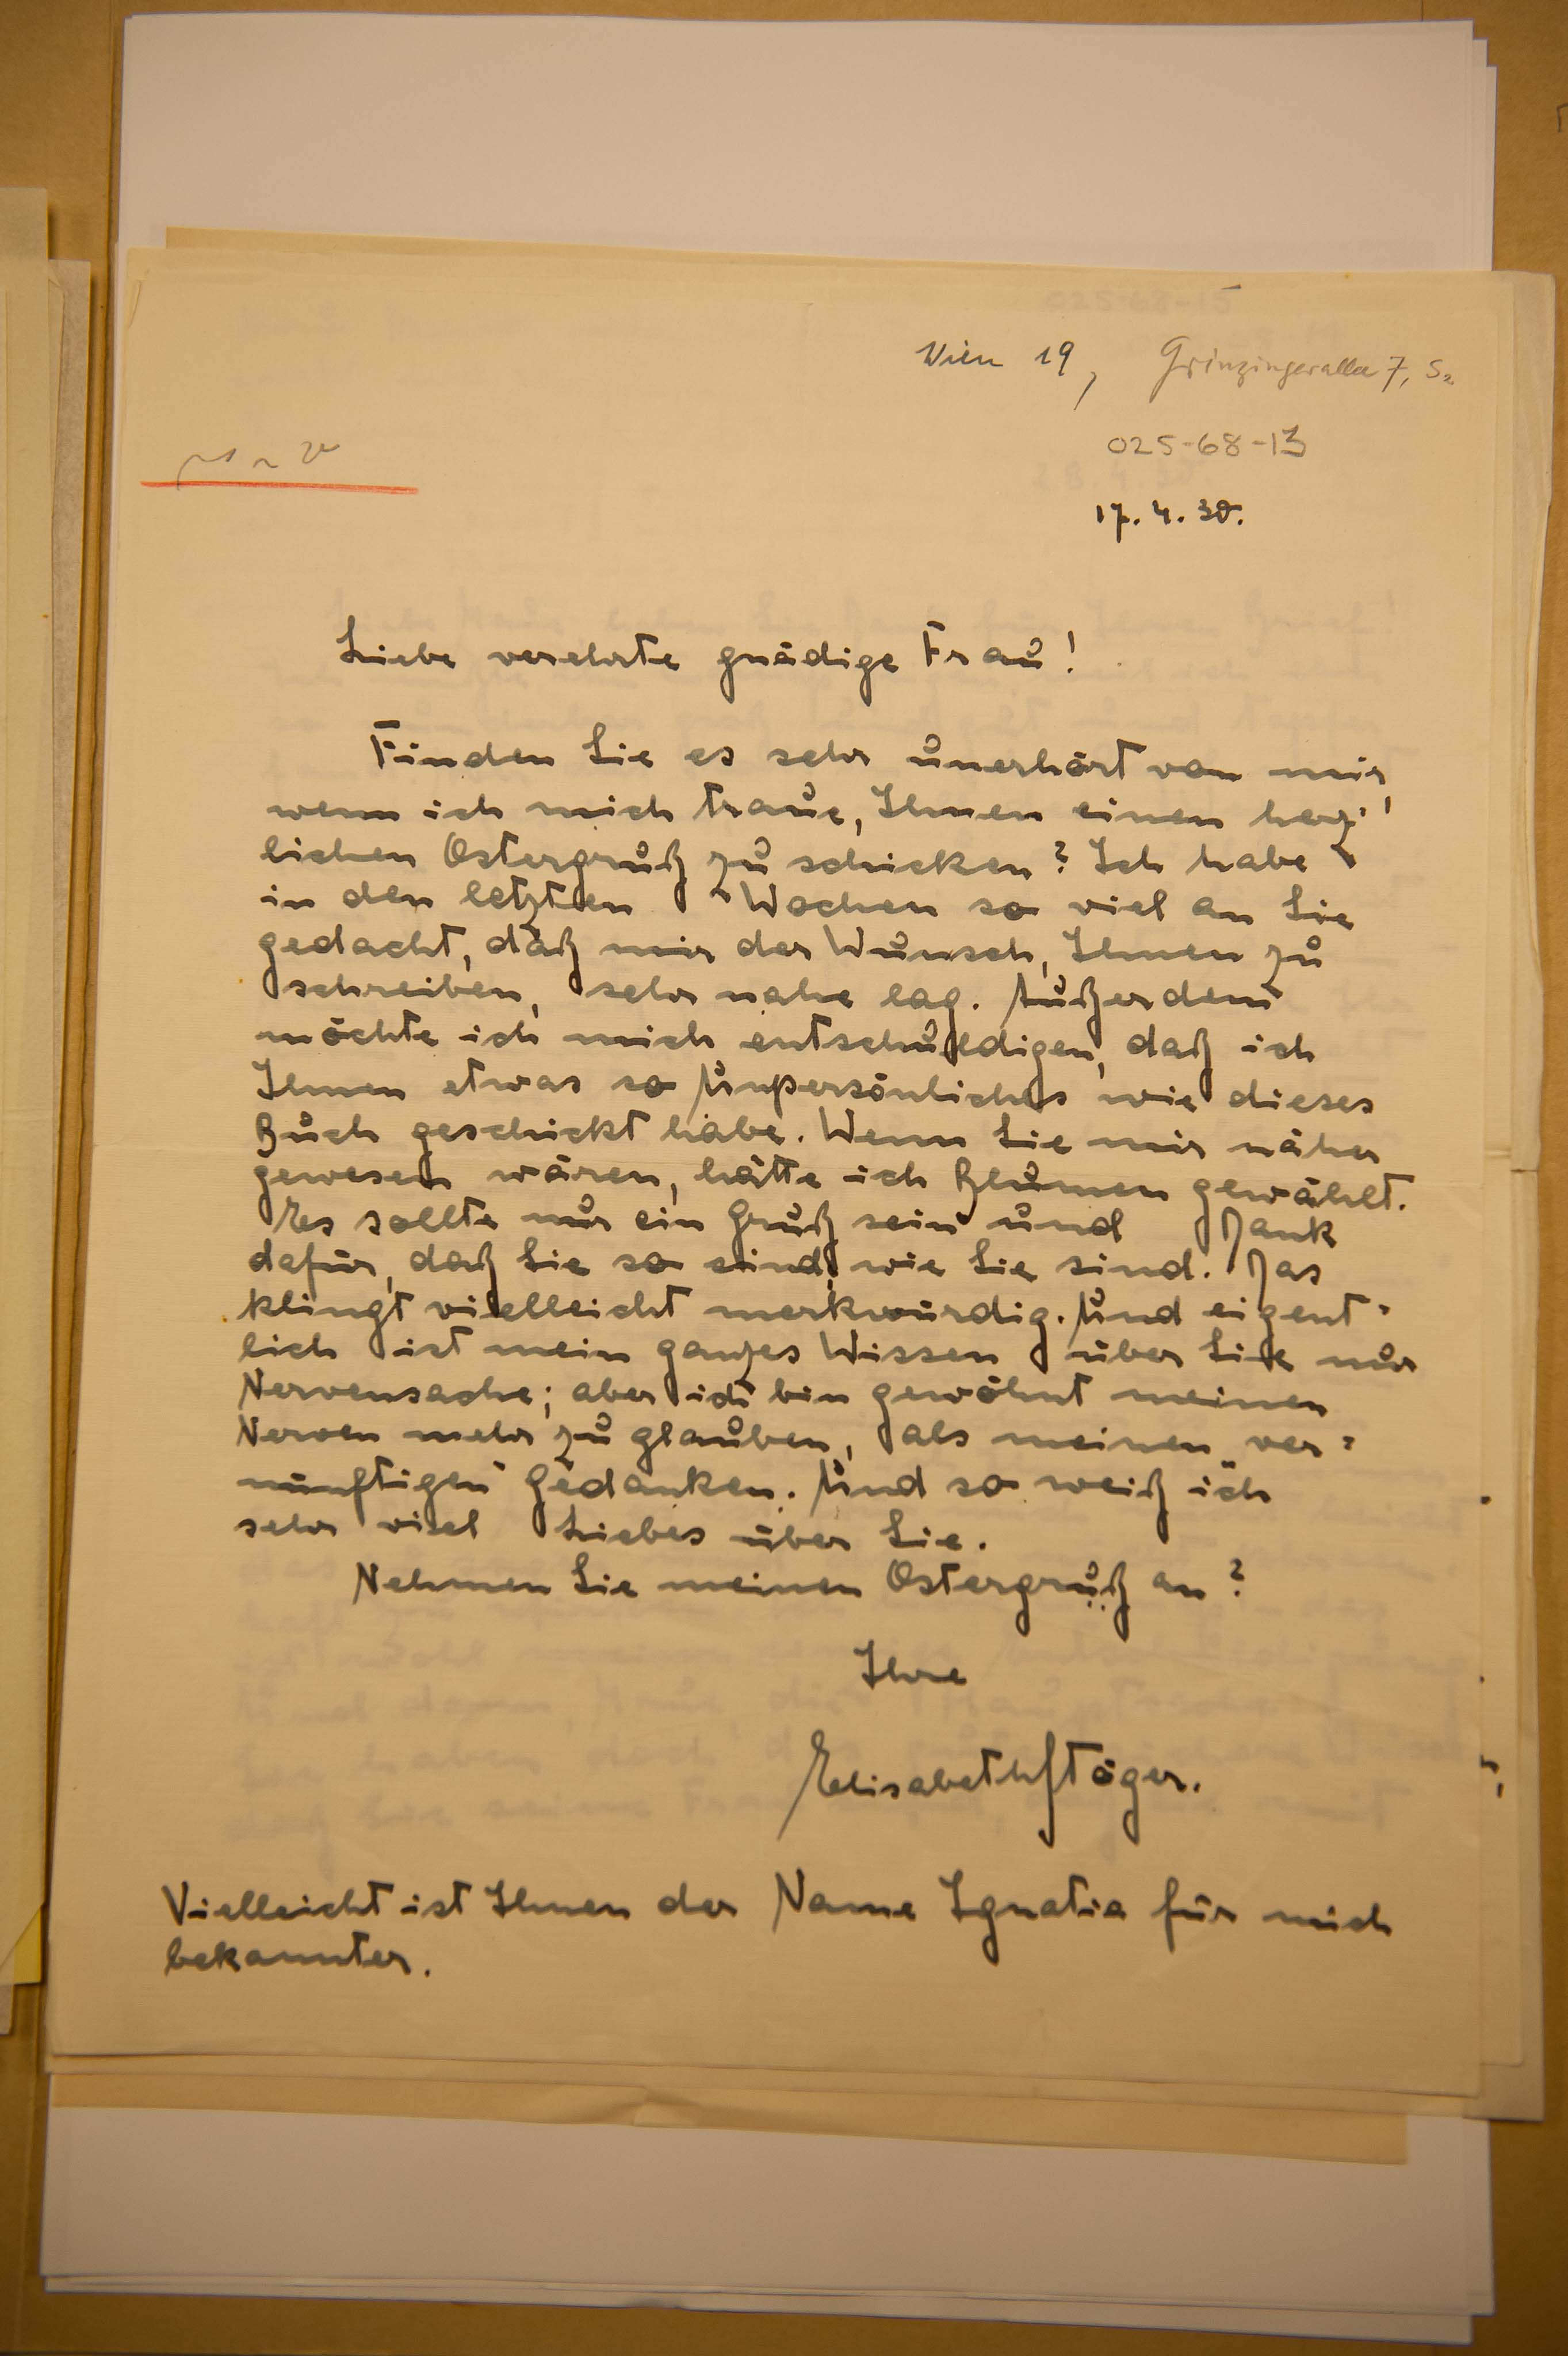 Wien 19, Grinzingerallee 7,
025-68-13
17. 4. 30.
Liebe verehrte gnädige Frau!
Finden Sie es sehr unerhört von mir,
wenn ich mich traue, Ihnen einen herz-
lichen Ostergruß zu schicken? Ich habe
in den letzten Wochen so viel an Sie
gedacht, daß mir der Wunsch, Ihnen zu
schreiben, sehr nahe lag. Außerdem
möchte ich mich entschuldigen, daß ich
Ihnen etwas so Unpersönliches wie dieses
Buch geschickt habe. Wenn Sie mir näher
gewesen wären, hätte ich Blumen gewählt.
Es sollte nur ein Gruß sein und Dank
dafür, daß Sie so sind, wie Sie sind. Das
klingt vielleicht merkwürdig. Und eigent-
lich ist mein ganzes Wissen über Sie nur
Nervensache; aber ich bin gewöhnt meinen
Nerven mehr zu glauben, als meinen ver-
nünftigen Gedanken. Und so weiß ich
sehr viel Liebes über Sie.
Nehmen Sie meinen Ostergruß an?
Ihre
Elisabeth Stöger.
Vielleicht ist Ihnen der Name Ignatia für mich
bekannter.